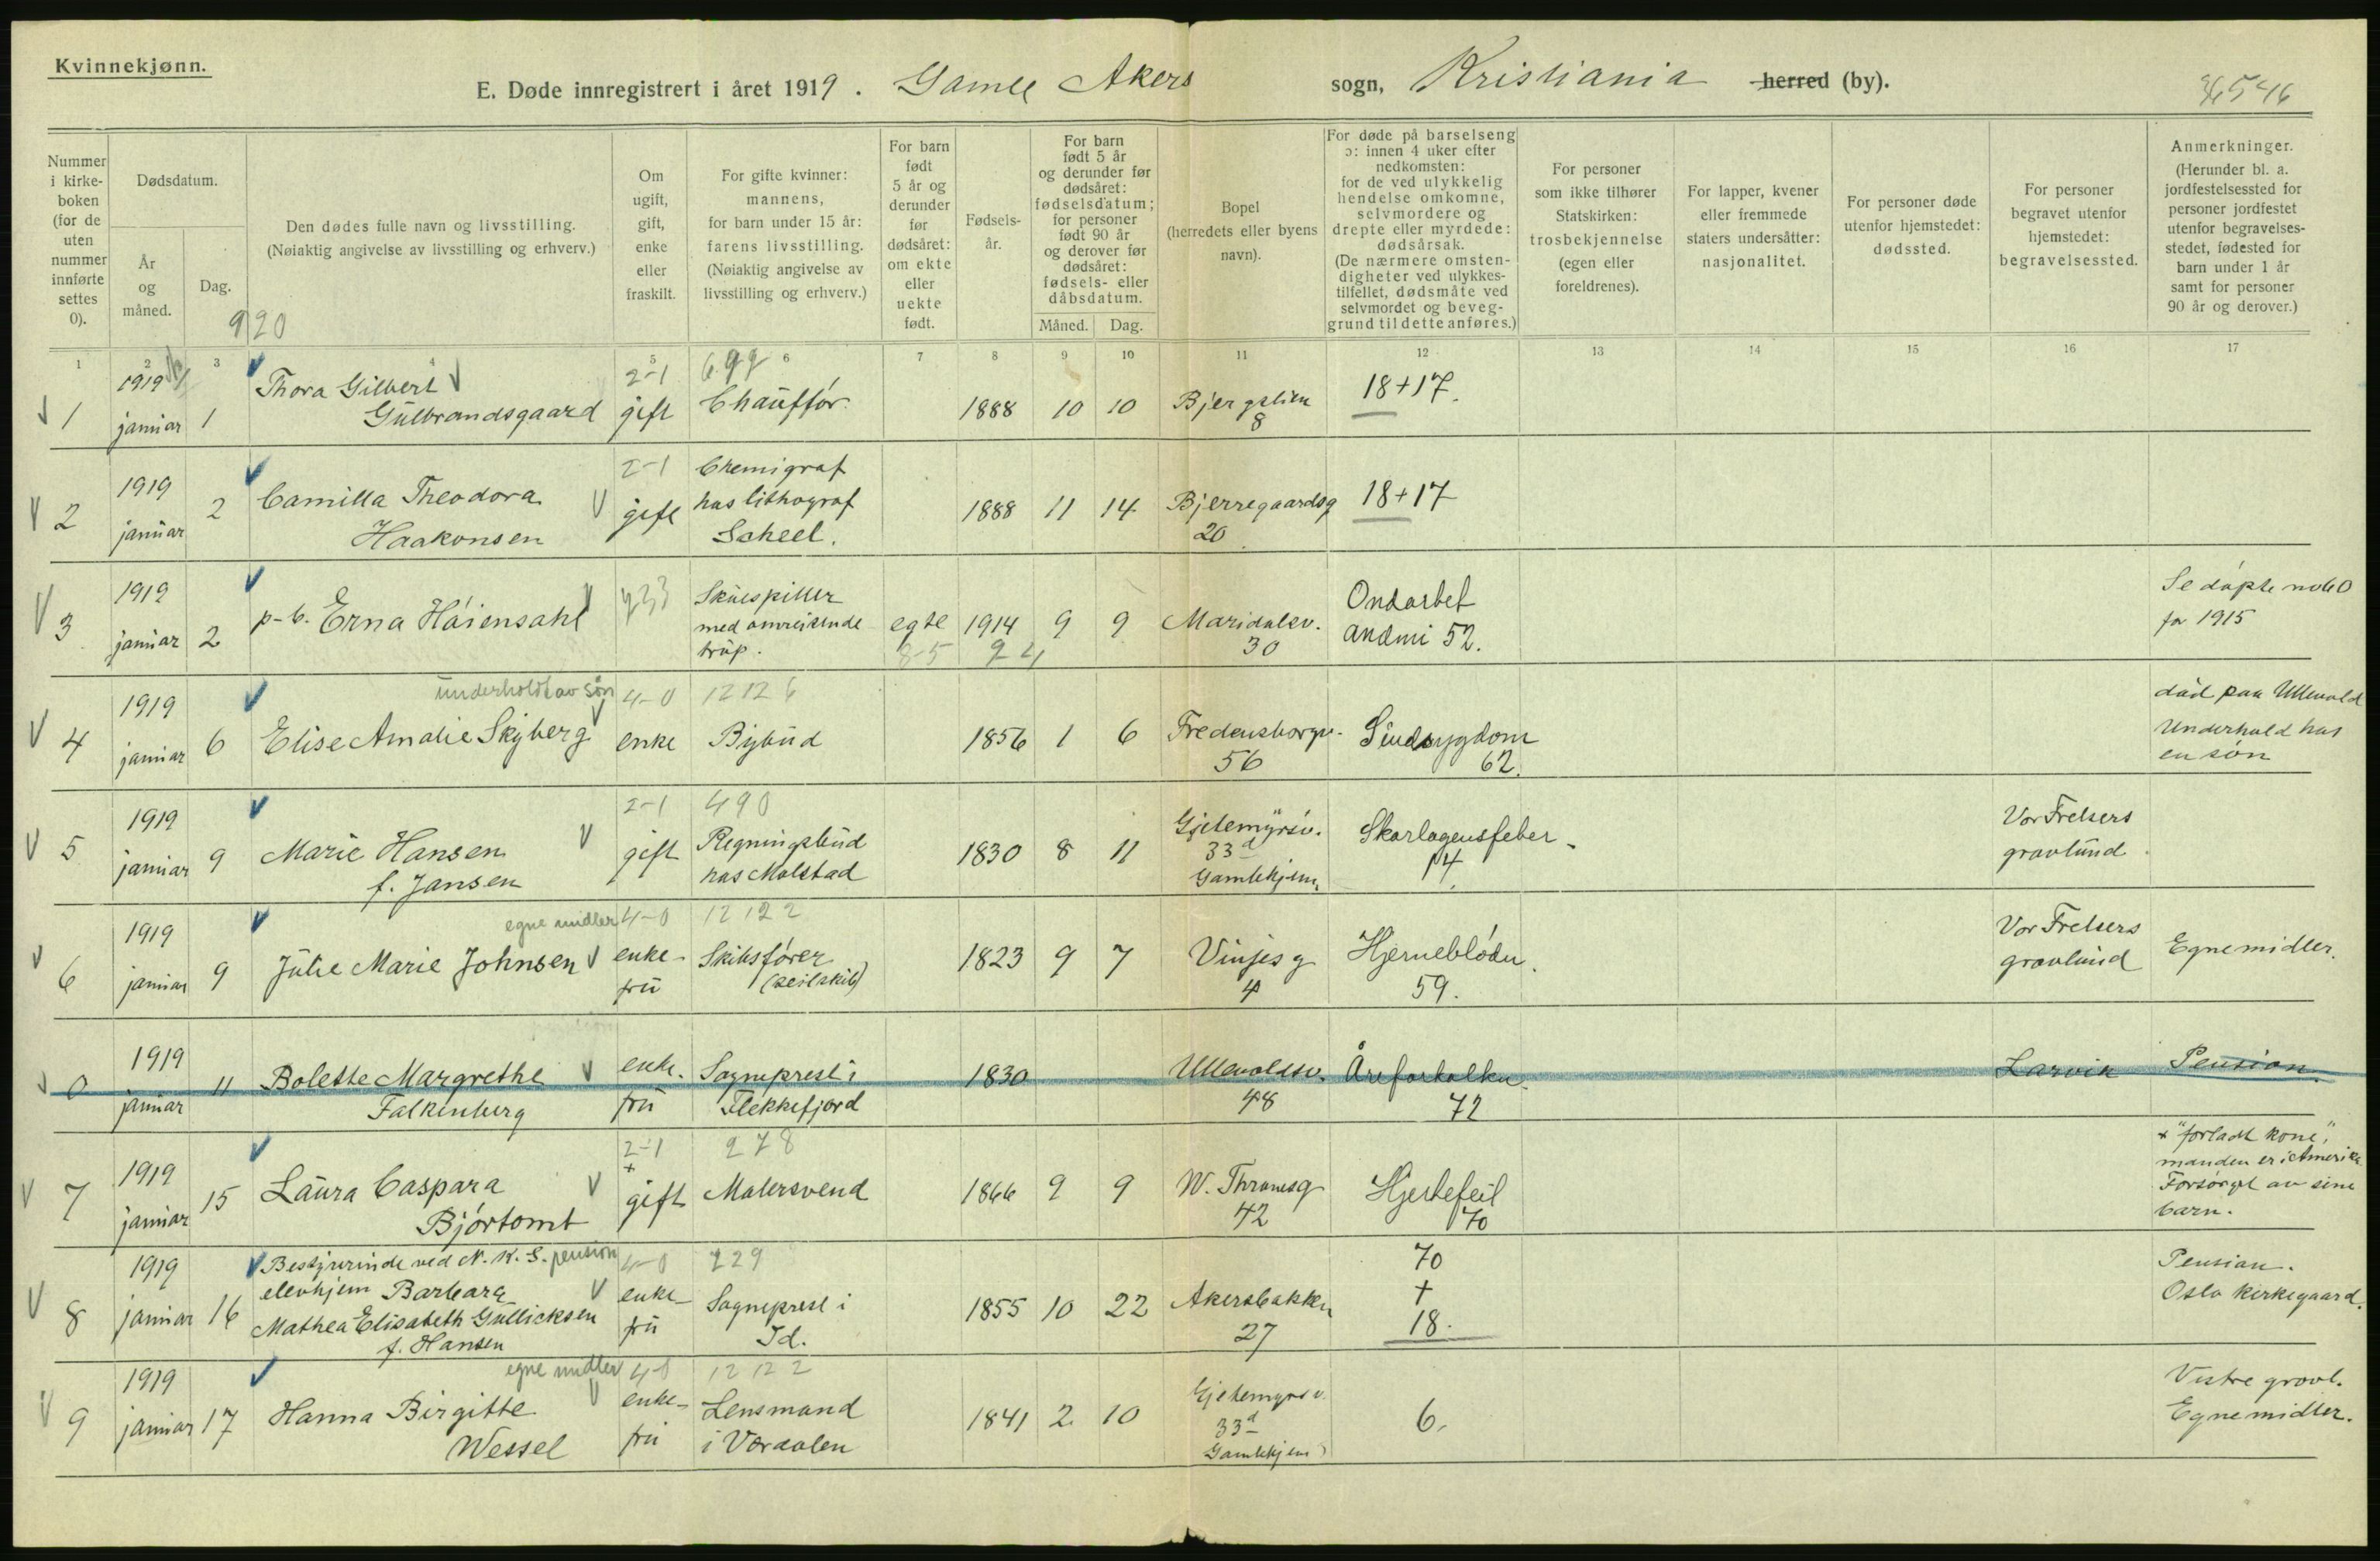 Kvinnekjønn.
E. Døde innregistrert i året 1919. Gamle Akers sogn, Kristiania herred (by).
Nummer i kirke- boken (for de uten nummer innførte settes 0).
Dødsdatum.
År og måned.
Dag.
Den dødes fulle navn og livsstilling.
(Nøiaktig angivelse av livsstilling og erhverv.)
Om ugift, gift, enke eller fraskilt.
For gifte kvinner: mannens, for barn under 15 år: farens livsstilling. (Nøiaktig angivelse av livsstilling og erhverv.)
For barn født 5 år og derunder før dødsåret: om ekte eller uekte født.
Fødsels- år.
For barn født 5 år og derunder før dødsåret: fødselsdatum; for personer født 90 år og derover før dødsåret: fødsels- eller dåbsdatum.
Måned. Dag.
Bopel (herredets eller byens navn).
For døde på barselseng ɔ: innen 4 uker efter nedkomsten: for de ved ulykkelig hendelse omkomne, selvmordere og drepte eller myrdede: dødsårsak. (De nærmere omsten- digheter ved ulykkes- tilfellet, dødsmåte ved selvmordet og beveg- grund til dette anføres.)
For personer som ikke tilhører Statskirken: trosbekjennelse (egen eller foreldrenes).
For lapper, kvener eller fremmede staters undersåtter: nasjonalitet.
For personer døde utenfor hjemstedet: dødssted.
For personer begravet utenfor hjemstedet: begravelsessted.
Anmerkninger. (Herunder bl. a. jordfestelsessted for personer jordfestet utenfor begravelses- stedet, fødested for barn under 1 år samt for personer 90 år og derover.)
920
1 2 3 4 5 6 7 8 9 10 11 12 13 14 15 16 17
1 1919 januar 1 Thora Gilbert Gulbrandsgaard 2-1 gift Chauffør. 1888 10 10 Bjergslien 8 18+17.
2 1919 januar 2 Camilla Theodora Haakonsen 2-1 gift Chemigraf hos lithograf Scheel. 1888 11 14 Bjerregaardsg 20 18+17
3 1919 januar 2 p-b. Erna Høiensahl Skuespiller med omreisende trup. egte 8-5 1914 9 9 Maridalsv. 30 Ondartet anæmi 52. Se døpte no 60 for 1915
4 1919 januar 6 underholdt av søn Elise Amalie Skyberg 4-0 enke 12126 Bybud 1856 1 6 Fredensborgv. 56 Sindsygdom 62. død paa Ullevold Underhold hos en søn
5 1919 januar 9 Marie Hansen f. Jansen 2-1 gift 490 Regningsbud hos Molstad 1830 8 11 Gjetemyrsv. 33d Gamlehjem. Skarlagensfeber 14. Vor Frelsers gravlund.
6 1919 januar 9 egne midler Julie Marie Johnsen 4-0 enke- fru 12122 Skibsfører (seilskib) 1823 9 7 Vinjes g 4 Hjerneblødn. 59. Vor Frelsers gravlund Egne midler.
0 1919 januar 11 Bolette Margrethe Falkenberg enke- fru Sogneprest i Flekkefjord 1830 Ullevoldsv. 48 Åreforkalkn. 72 Larvik Pension.
7 1919 januar 15 Laura Caspara Bjørtomt 2-1 + gift 278 Malersvend 1866 9 9 W. Thranesg 42 Hjertefeil 70 + "forladt kone", manden er i Amerika Forsørget av sine barn.
8 1919 januar 16 Bestyrerinde ved N. K. S. pension elevhjem Barbara Mathea Elisabeth Gullicksen f. Hansen 4-0 enke- fru 229 Sogneprest i Id. 1855 10 22 Akersbakken 27 70 + 18. Pension. Oslo kirkegaard.
9 1919 januar 17 egne midler Hanna Birgitte Wessel 4-0 enke- fru 12122 Lensmand i Værdalen 1841 2 10 Gjetemyrsv. 33d Gamlehjem 6. Vestre gravl. Egne midler.